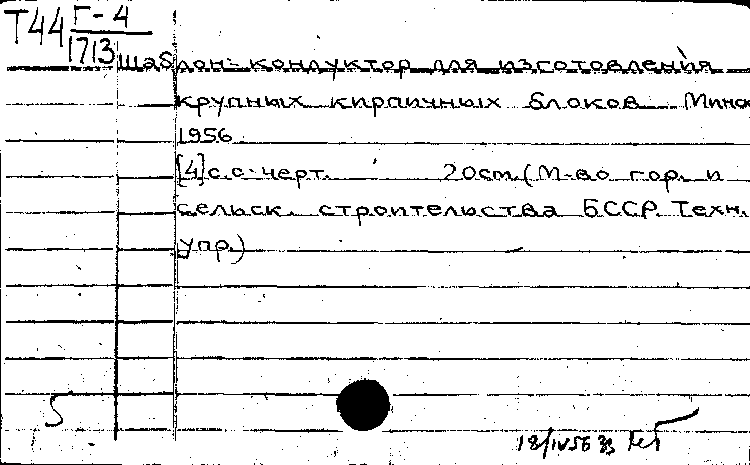 Т44 Г-4
1713
Шаблон-кондуктор для изготовления
крупных кирпичных блоков. Минск
1956.
[4] с. с черт. 20см. (М-во гор. и
сельск. строительства БССР. Техн.
упр.)
5
18/IV 56